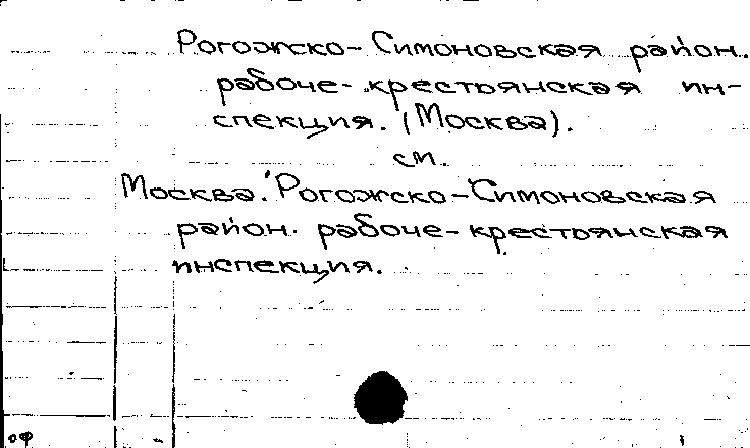 Рогожско-Симоновская район.
рабоче-крестьянская ин-
спекция. (Москва).
см.
Москва. Рогожско-Симоновская
район. рабоче-крестьянская
инспекция.
оф